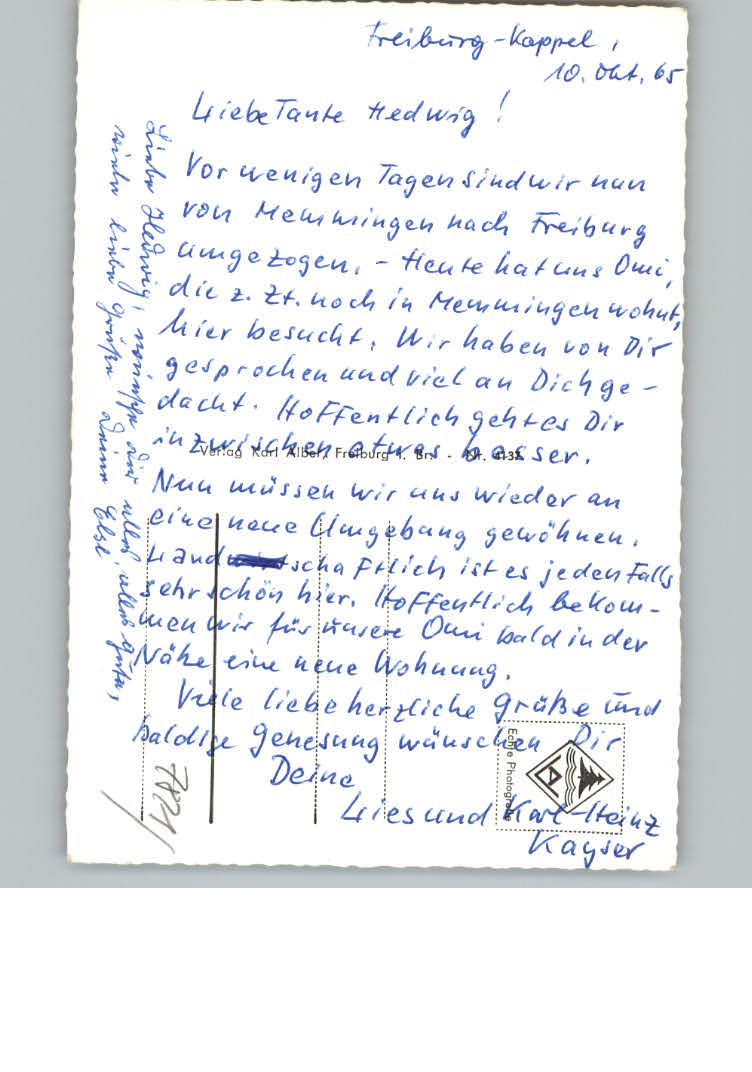 Freiburg-Kappel,
10. Okt. 65
Liebe Tante Hedwig!
Vor wenigen Tagen sind wir nun
von Memmingen nach Freiburg
umgezogen. - Heute hat uns Omi,
die z. Zt. noch in Memmingen wohnt,
hier besucht. Wir haben von Dir
gesprochen und viel an Dich ge-
dacht. Hoffentlich geht es Dir
inzwischen etwas besser.
Verlag Karl Alber, Freiburg i. Br. - Nr. 4132
Nun müssen wir uns wieder an
eine neue Umgebung gewöhnen.
Landschaftlich ist es jedenfalls
sehr schön hier. Hoffentlich bekom-
men wir für unsere Omi bald in der
Nähe eine neue Wohnung.
Viele liebe herzliche Grüße und
baldige Genesung wünschen Dir
Deine
Lies und Karl-Heinz
Kayser
Liebe Hedwig, wünsche dir alles, alles Gute,
viele liebe Grüße Deine Else
Echte Photografie
7821